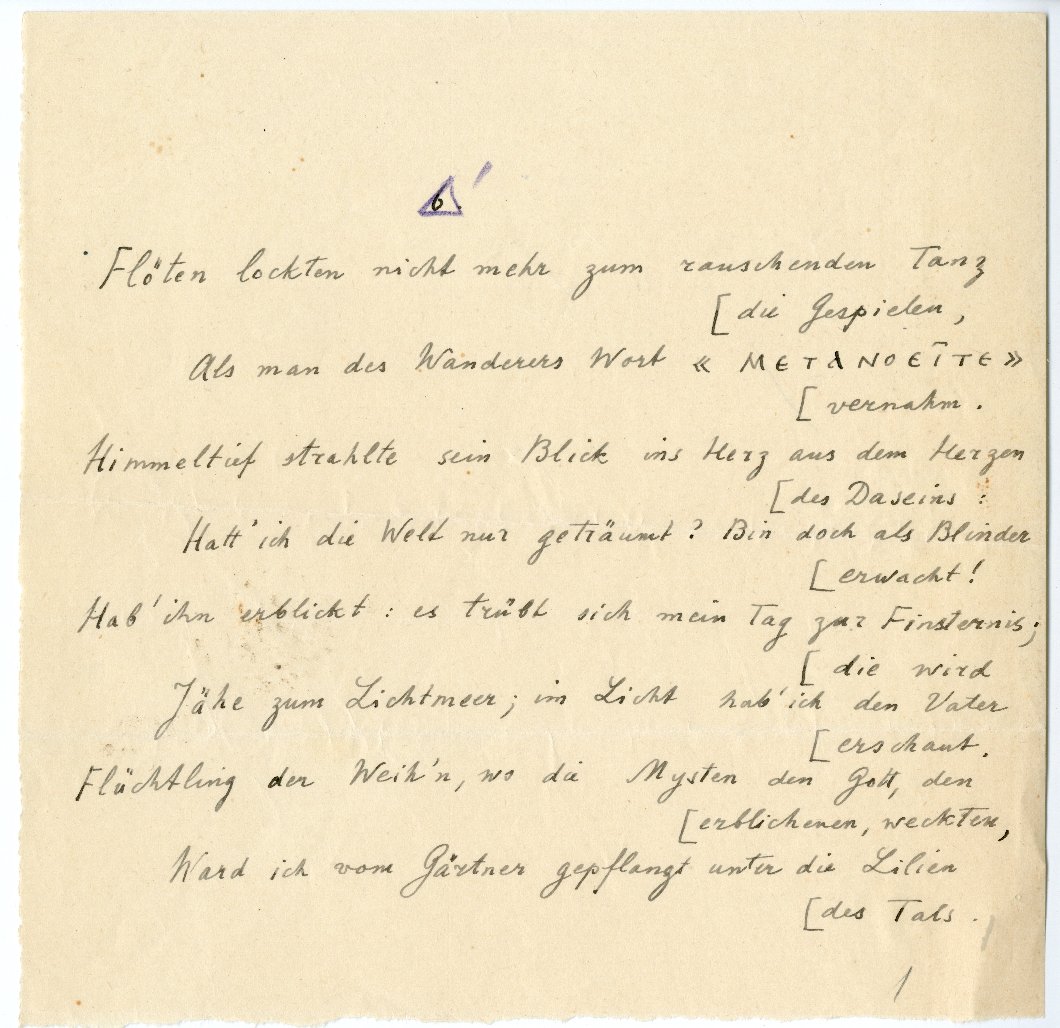 6
Flöten lockten nicht mehr zum rauschenden Tanz
[die Gespielen,
Als man des Wanderers Wort « ΜΕΤΑΝΟΕῖΤΕ »
[vernahm.
Himmeltief strahlte sein Blick ins Herz aus dem Herzen
[des Daseins:
Hatt' ich die Welt nur geträumt? Bin doch als Blinder
[erwacht!
Hab' ihn erblickt: es trübt sich mein Tag zur Finsternis;
[die wird
Jähe zum Lichtmeer; im Licht hab' ich den Vater
[erschaut.
Flüchtling der Weih'n, wo die Mysten den Gott, den
[erblichenen, weckten,
Ward ich vom Gärtner gepflanzt unter die Lilien
[des Tals.